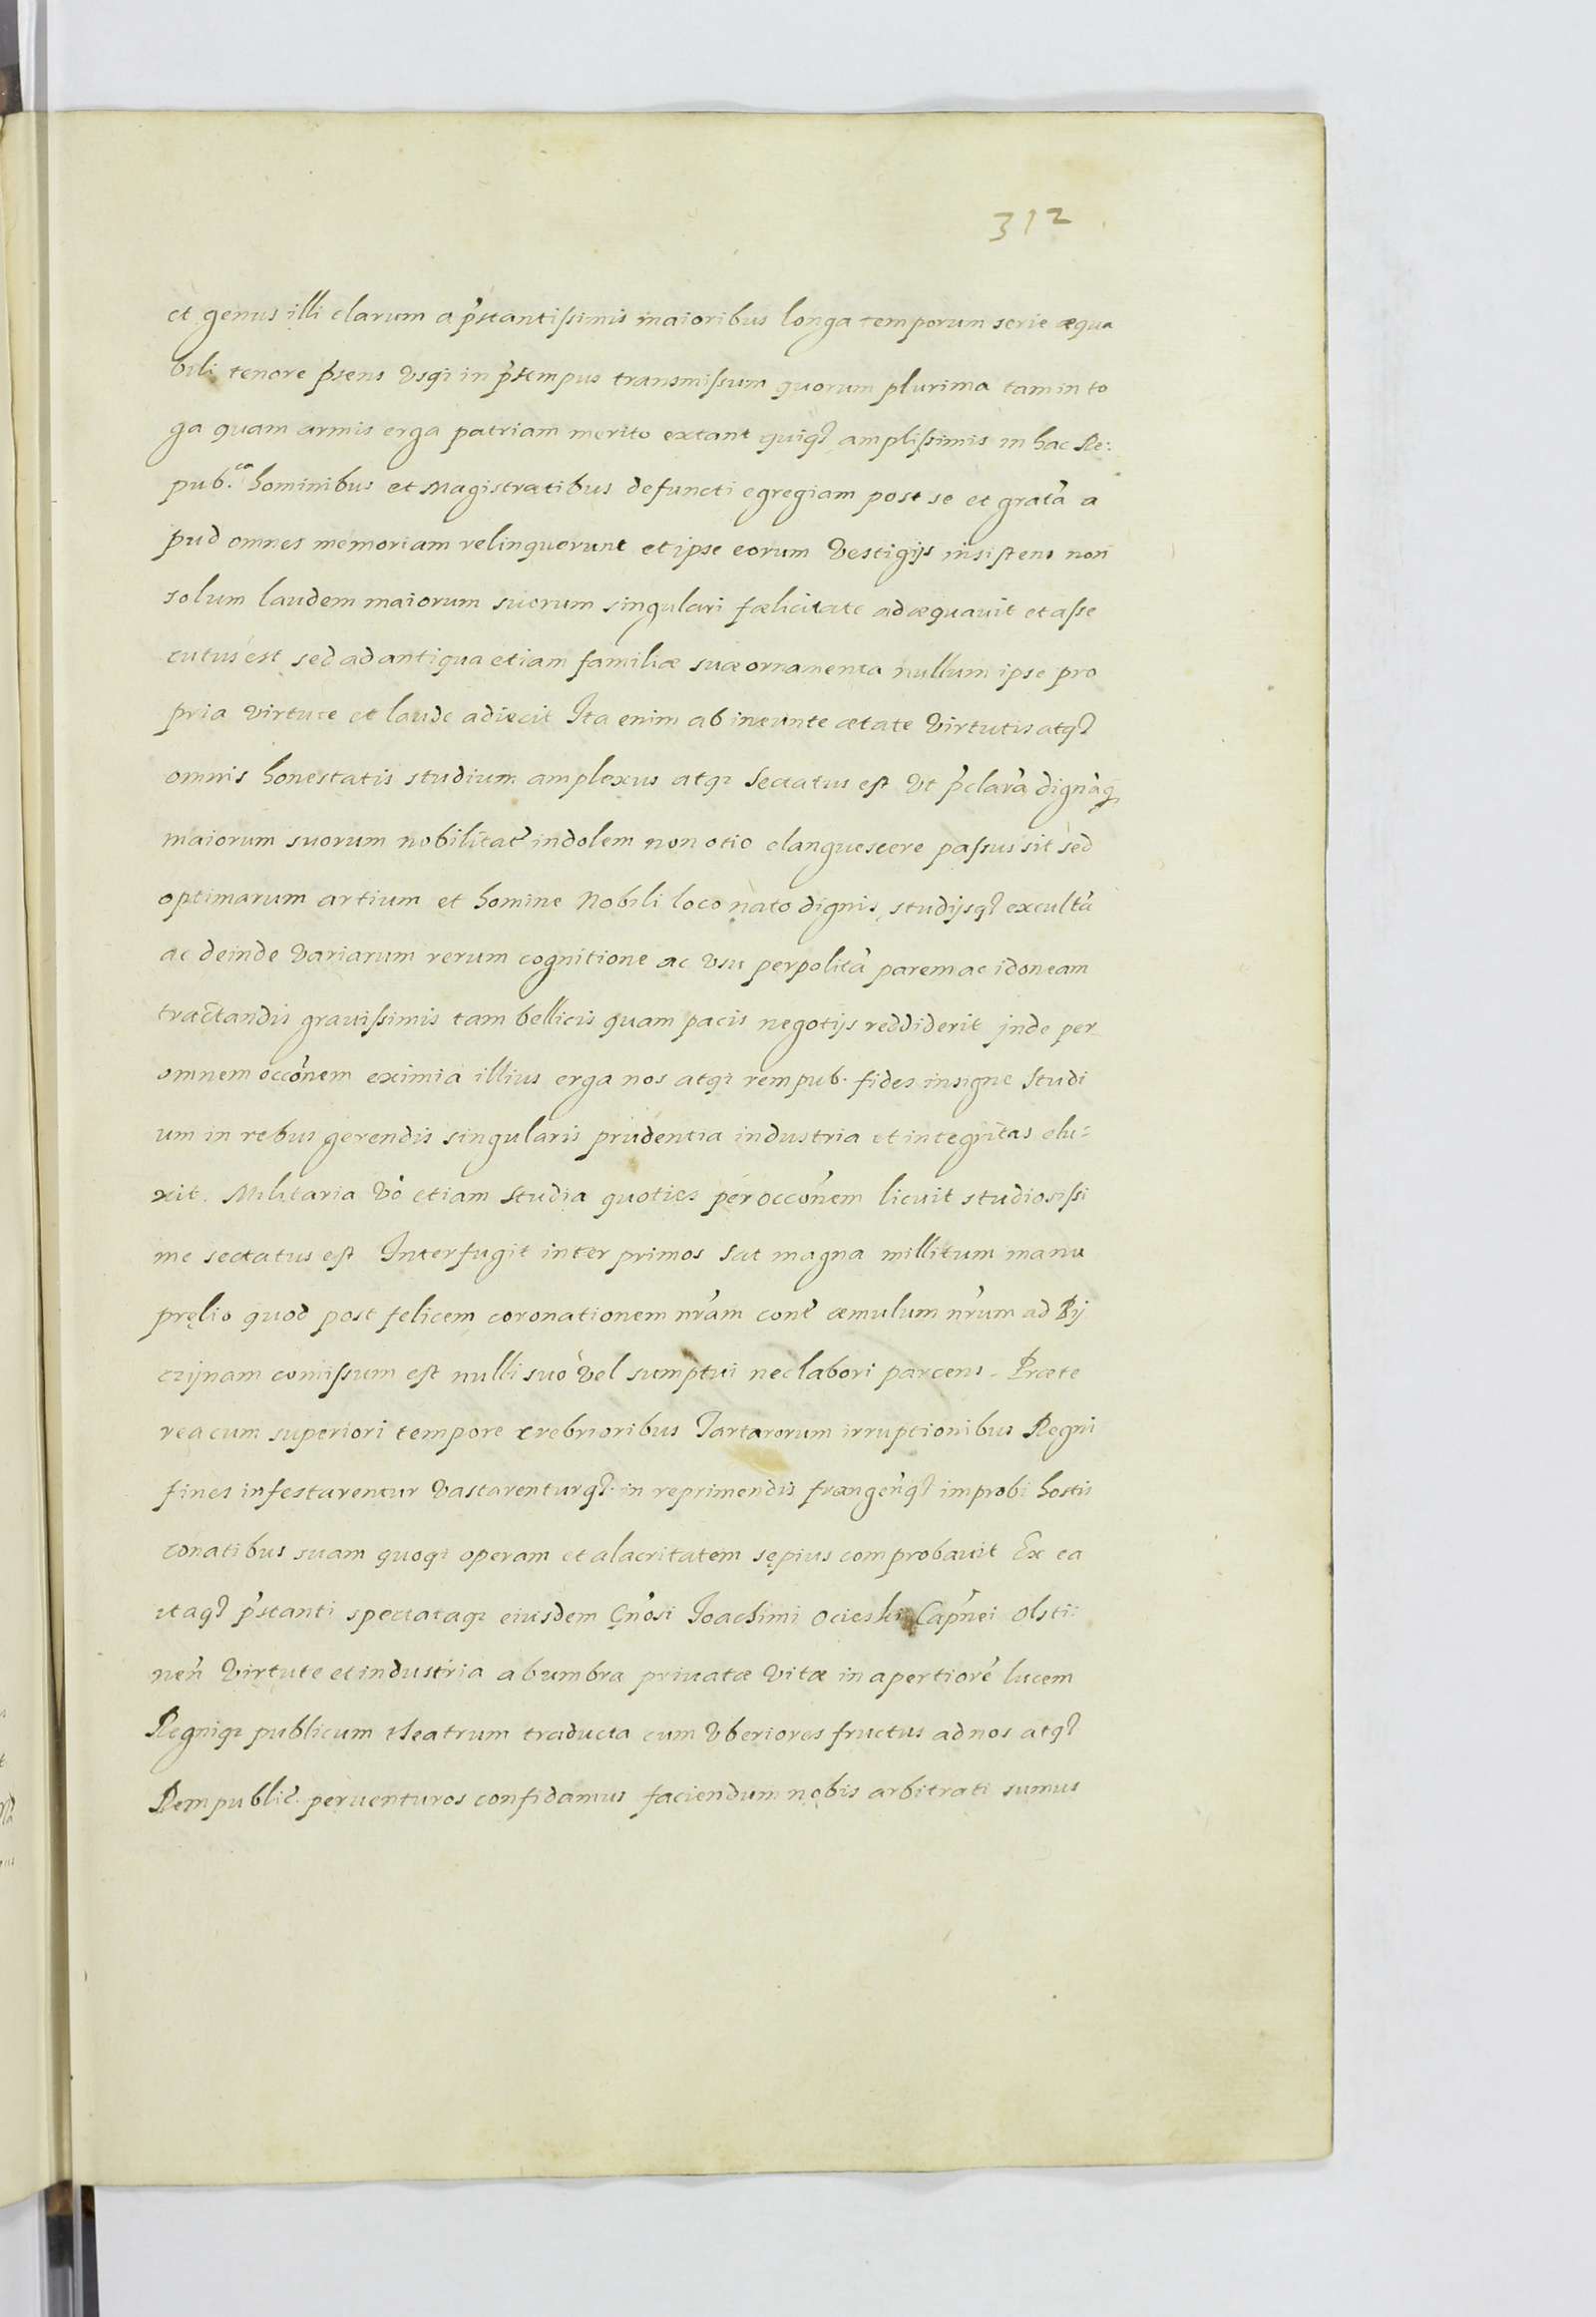 312
et genus illi clarum a p̃stantiſsimis maioribus longa temporum serie æqua
bili tenore p̃sens usq; in p̃s tempus transmiſsum quorum plurima tam in to
ga quam armis erga patriam merito extant quiq; ampliſsimis in hac Re:
pub.ca hominibus et Magistratibus defuncti egregiam post se et gratã a
pud omnes memoriam relinquerunt et ipse eorum vestigijs insistens non
solum laudem maiorum suorum singulari fælicitate adæquavit et aſse
cutus est sed ad antiqua etiam familiæ suæ ornamenta nullum ipse pro
pria virtute et laude adiecit Ita enim ab ineunte ætate virtutis atq;
omnis honestatis studium amplexus atq; sectatus est ut p̃clarã dignãq;
maiorum suorum nobilitat̃ indolem non otio elanguescere paſsus sit sed
optimarum artium et homine Nobili loco nato dignis studijsq; excultã
ac deinde variarum rerum cognitione ac usu perpolitã parem ac idoneam
tractandis graviſsimis tam bellicis quam pacis negotijs reddiderit jnde per
omnem occõnem eximia illius erga nos atq; rempub. fides insigne studi
um in rebus gerendis singularis prudentia industria et integritas elu=
xit. Militaria vo etiam studia quoties per occõnem licuit studiosiſsi
me sectatus est Interfugit inter primos sat magna millitum manu
pręlio quod post felicem coronationem nr̃am cont̃ æmulum nr̃um ad Bij
czijnam comiſsum est nulli suo vel sumptui nec labori parcens. Præte
rea cum superiori tempore crebrioribus Tartarorum irruptionibus Regni
fines infestarentur vastarenturq; in reprimendis frangeñq; improbi hostis
conatibus suam quoq; operam et alacritatem sępius comprobavit Ex ea
itaq; p̃stanti spectataq; eiusdem Gñosi Joachimi Ocieski Capñei Olsti:
neñ virtute et industria ab umbra privatæ vitæ in apertiorẽ lucem
Regniq; publicum theatrum traducta cum uberiores fructus ad nos atq;
Rempublic̃. perventuros confidamus faciendum nobis arbitrati sumus